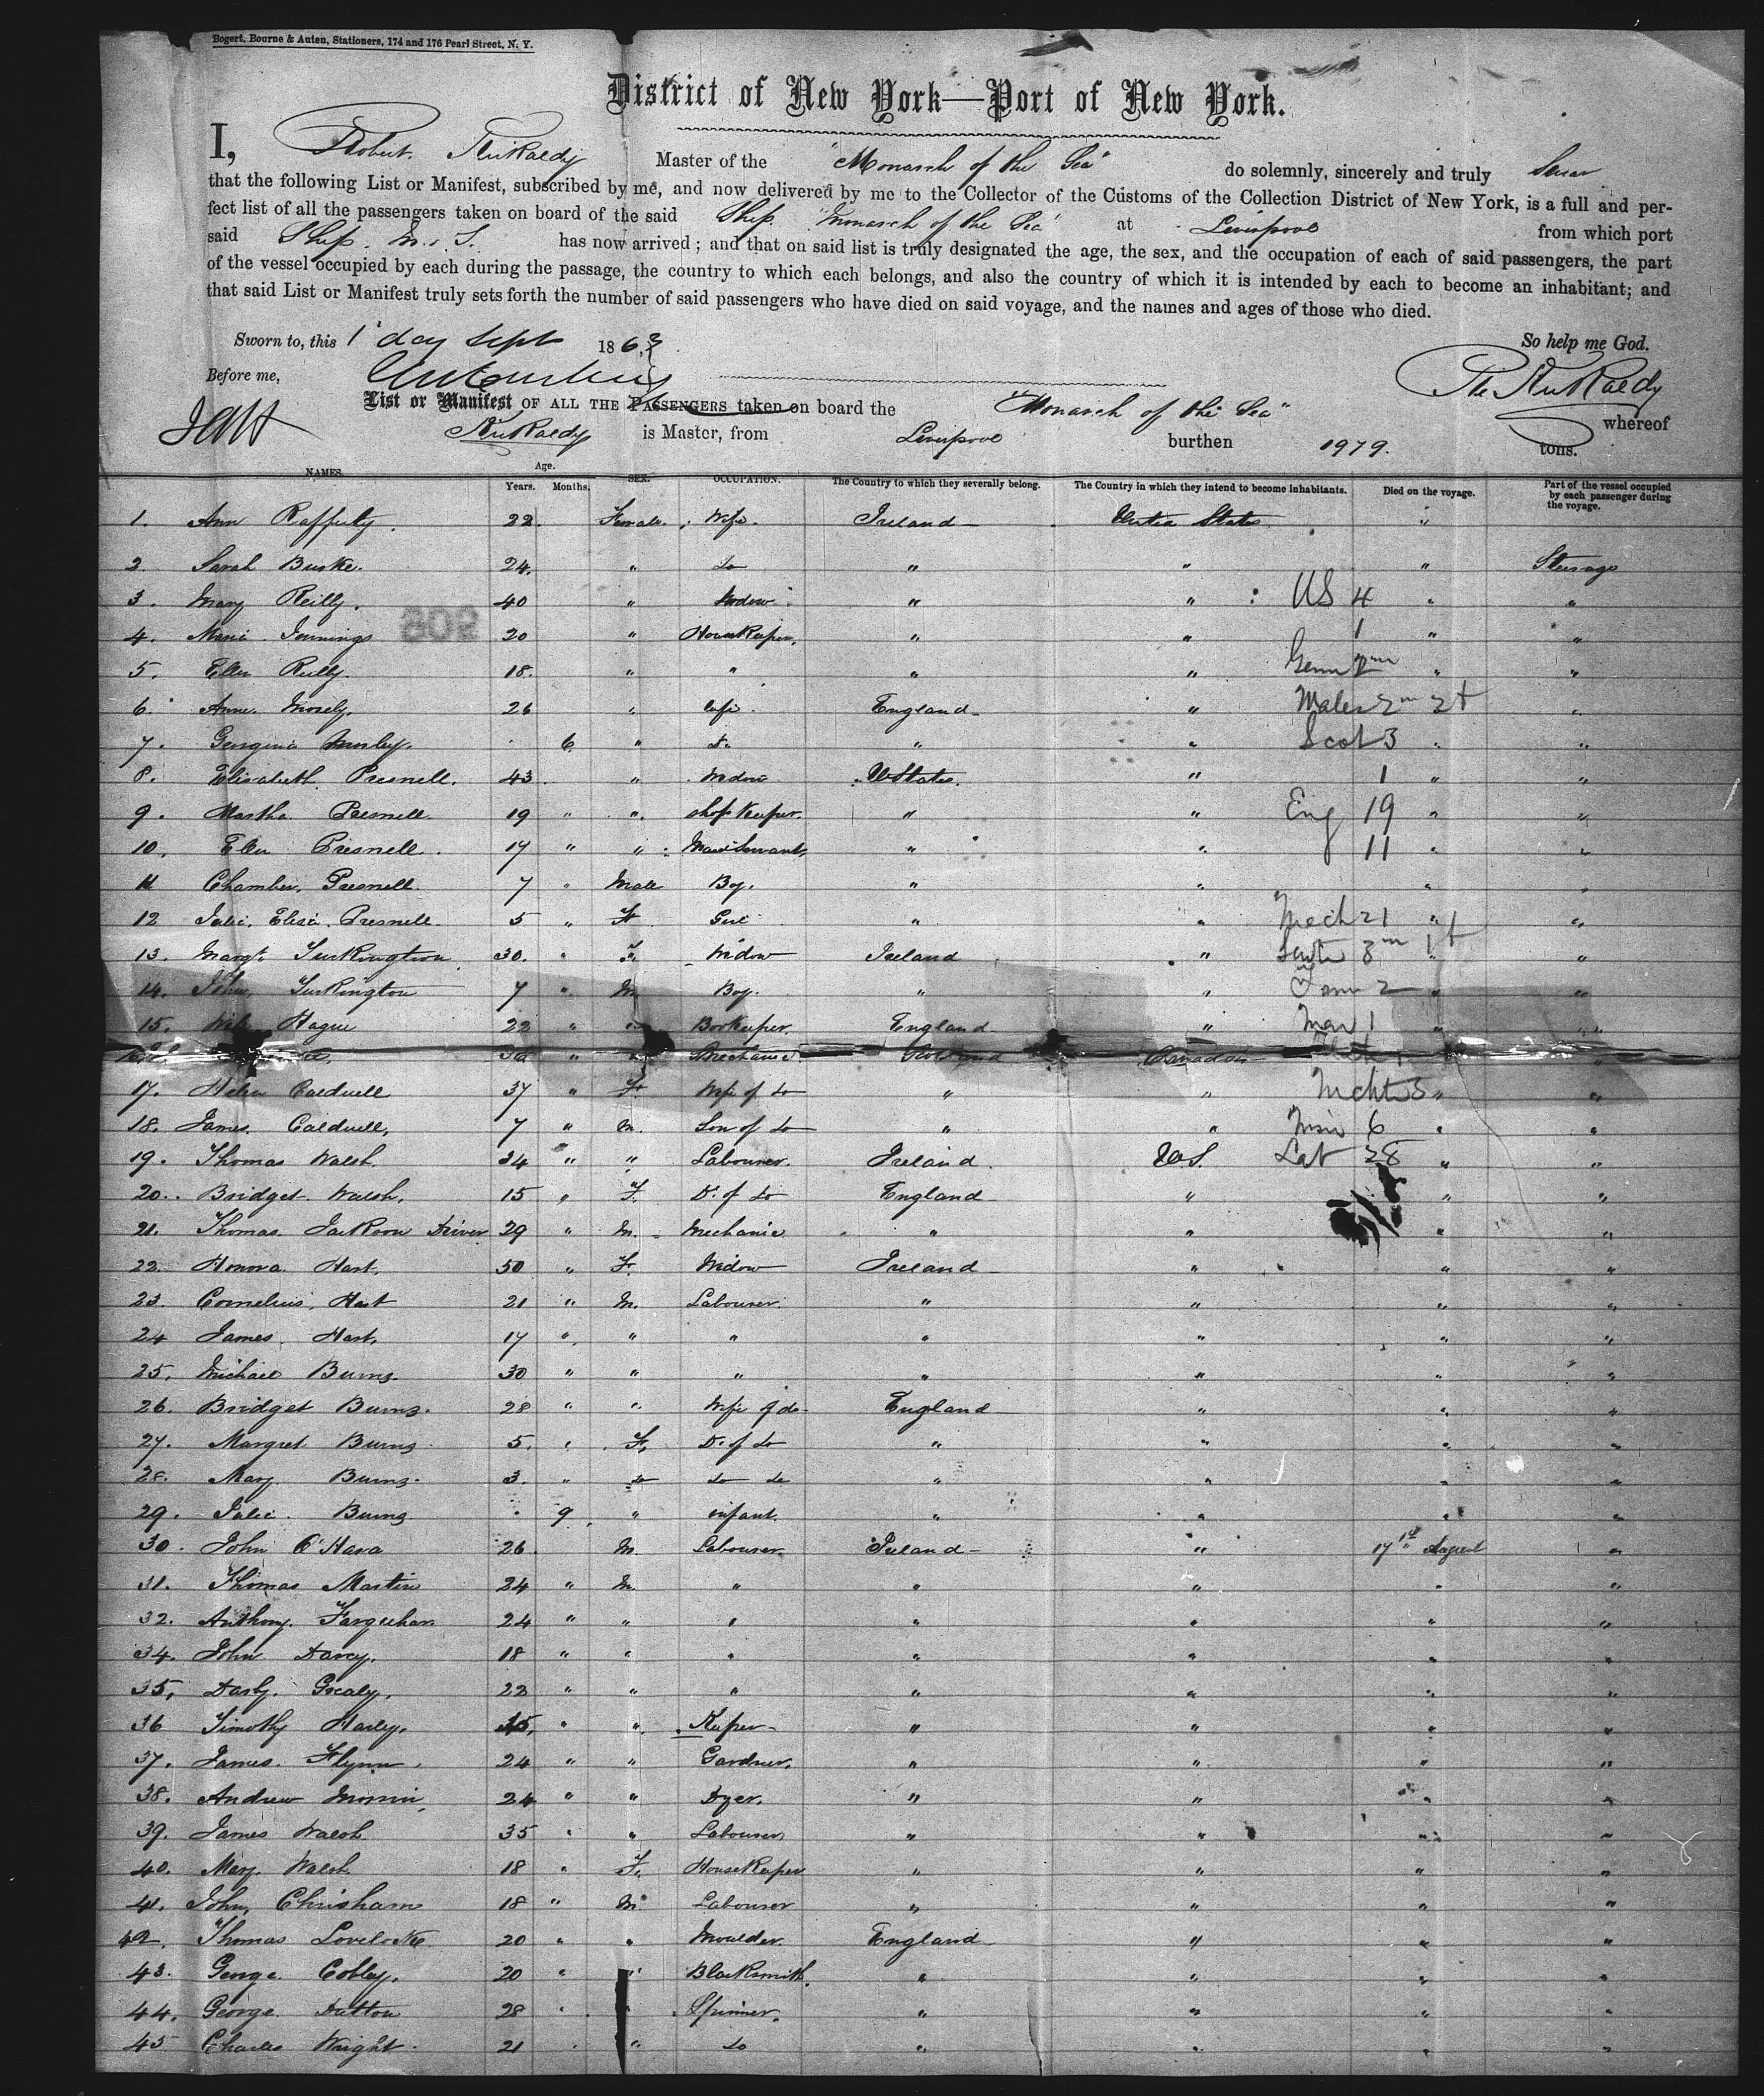 Bogert, Bourne & Auten, Stationers, 174 and 176 Pearl Street, N. Y.
District of New York—Port of New York.
I, Robert Kirkaldy Master of the "Monarch of the Sea" do solemnly, sincerely and truly Swear
that the following List or Manifest, subscribed by me, and now delivered by me to the Collector of the Customs of the Collection District of New York, is a full and per-
fect list of all the passengers taken on board of the said Ship "Monarch of the Sea" at Liverpool from which port
said Ship M. S. has now arrived; and that on said list is truly designated the age, the sex, and the occupation of each of said passengers, the part
of the vessel occupied by each during the passage, the country to which each belongs, and also the country of which it is intended by each to become an inhabitant; and
that said List or Manifest truly sets forth the number of said passengers who have died on said voyage, and the names and ages of those who died.
Sworn to, this 1 day Sept 1863 So help me God.
Before me, Kirkaldy
List or Manifest OF ALL THE PASSENGERS taken on board the "Monarch of the Sea" whereof
Kirkaldy is Master, from Liverpool burthen 1979. tons.
NAMES. Age. Years. Months. SEX. OCCUPATION. The Country to which they severally belong. The Country in which they intend to become inhabitants. Died on the voyage. Part of the vessel occupied by each passenger during the voyage.
1. Ann Rafferty. 22. Female. Wife. Ireland United States "
2. Sarah Burke. 24. " do " " " Steerage
3. Mary Reilly. 40 " Widow " " US 4 " "
4. Maria Jennings 20 " HouseKeeper. " " 1 " "
5. Ellen Reilly. 18. " " " " " "
6. Anne Mosely. 26 " Wife England " " "
7. Georgina Mosley. 6 " " " Scot 3 " "
8. Elizabeth Presnell. 43 " Widow U States. " 1 " "
9. Martha Presnell 19 " " shopkeeper. " " Eng 19 " "
10. Ellen Presnell. 17 " " Maid Servant, " " 11 " "
11 Chamber, Presnell. 7 " Male Boy. " " " "
12 Julia, Eliza Presnell. 5 " F Girl " " Mech 21 " "
13. Margt. Turkington 30. " F. Widow Ireland " " "
14. John, Turkington 7 " M. Boy. " " " "
15. Hague 22 " " Bookeeper. England " " "
" " Mechanic Scotland Canada "
17. Helen Caldwell 37 " F. Wife of do " " " "
18. James. Caldwell, 7 " M. Son of do " " 6 " "
19. Thomas Walsh. 34 " " Labourer. Ireland. US. Lab 28 " "
20. Bridget Walsh, 15 " F. D. of do England " " "
21. Thomas. Jackson Driver 29 " M. Mechanic " " " "
22. Honora Hart. 50 " F. Widow Ireland " " "
23. Cornelius, Hart 21 " M. Labourer. " " " "
24 James, Hart, 17 " " " " " " "
25. Michael Burns. 30 " " " " " " "
26. Bridget Burns. 28 " " Wife of do England " " "
27. Margret Burns 5. " F. D. of do " " " "
28. Mary Burns. 3. " do do do " " " "
29. Julia. Burns 9 " infant " " " "
30. John O'Hara 26. M. Labourer. Ireland " 17th August "
31. Thomas Martin 24 " M. " " " " "
32. Anthony. Farquhar. 24 " " " " " " "
34. John Darcy. 18 " " " " " " "
35. Darby. Grealy. 22 " " " " " " "
36 Timothy Harley. " " Keeper " " " "
37. James. Flynn. 24 " " Gardner. " " " "
38. Andrew 24 " " Dyer. " " " "
39. James Walsh 35 " " Labourer " " " "
40. Mary Walsh 18 " F. HouseKeeper " " " "
41. John, Chrisham 18 " M. Labourer " " " "
42. Thomas Lovelocke 20 " " Moulder. England " " "
43. George Cobley. 20 " " Blacksmith. " " " "
44. George. Dutton 28 " " Spinner. " " " "
45 Charles Wright. 21 " " do " " " "